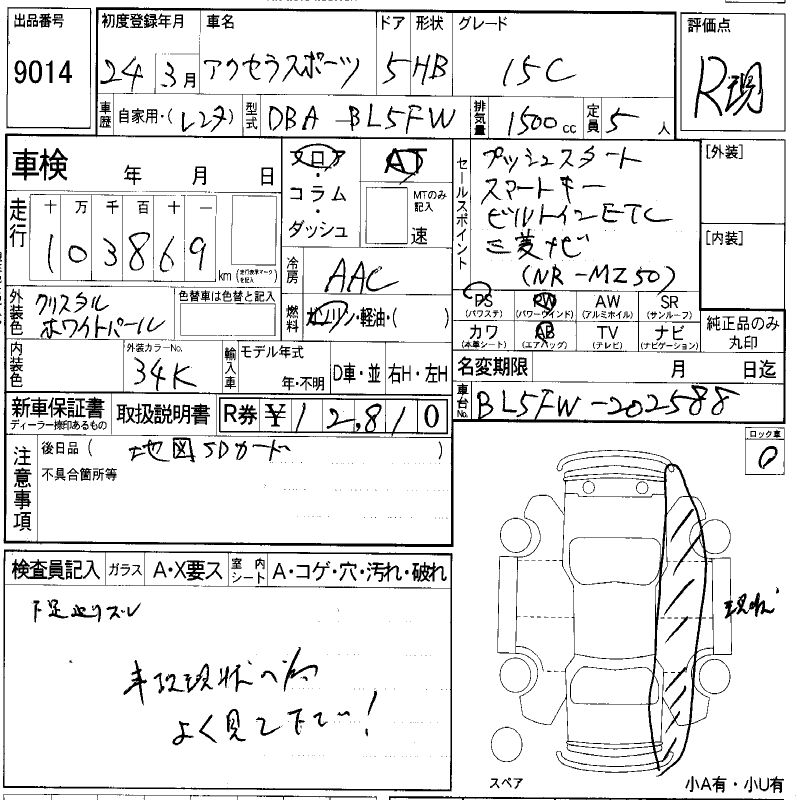 出品番号 初度登録年月 車名 ドア 形状 グレード 評価点
9014 24 3月 アクセラスポーツ 5 HB 15C R現
車歴 自家用・(レンタ) 型式 DBA-BL5FW 排気量 1500cc 定員 5人
車検 年 月 日
フロア・コラム・ダッシュ
AT
MTのみ記入
速
走行
十 万 千 百 十 一
103869
km
(走行表示マークを記入)
冷房 AAC
外装色 クリスタルホワイトパール
色替車は色替と記入
燃料 ガソリン・軽油・( )
内装色
外装カラーNo.
34K
輸入車
モデル年式
年・不明
D車・並 右H・左H
セールスポイント
プッシュスタート
スマートキー
ビルトインETC
三菱ナビ
(NR-MZ50)
[外装]
[内装]
PS RW AW SR
(パワステ) (パワーウインド) (アルミホイル) (サンルーフ)
カワ AB TV ナビ
(本革シート) (エアバッグ) (テレビ) (ナビゲーション)
純正品のみ丸印
名変期限 月 日迄
新車保証書
ディーラー捺印あるもの
取扱説明書
R券 ¥12,810
車台No. BL5FW-202588
注意事項
後日品( 地図SDカード )
不具合箇所等
ロック車
0
検査員記入 ガラス A・X要ス 室内シート A・コゲ・穴・汚れ・破れ
現状
現状
よく見て下さい!
スペア
小A有・小U有